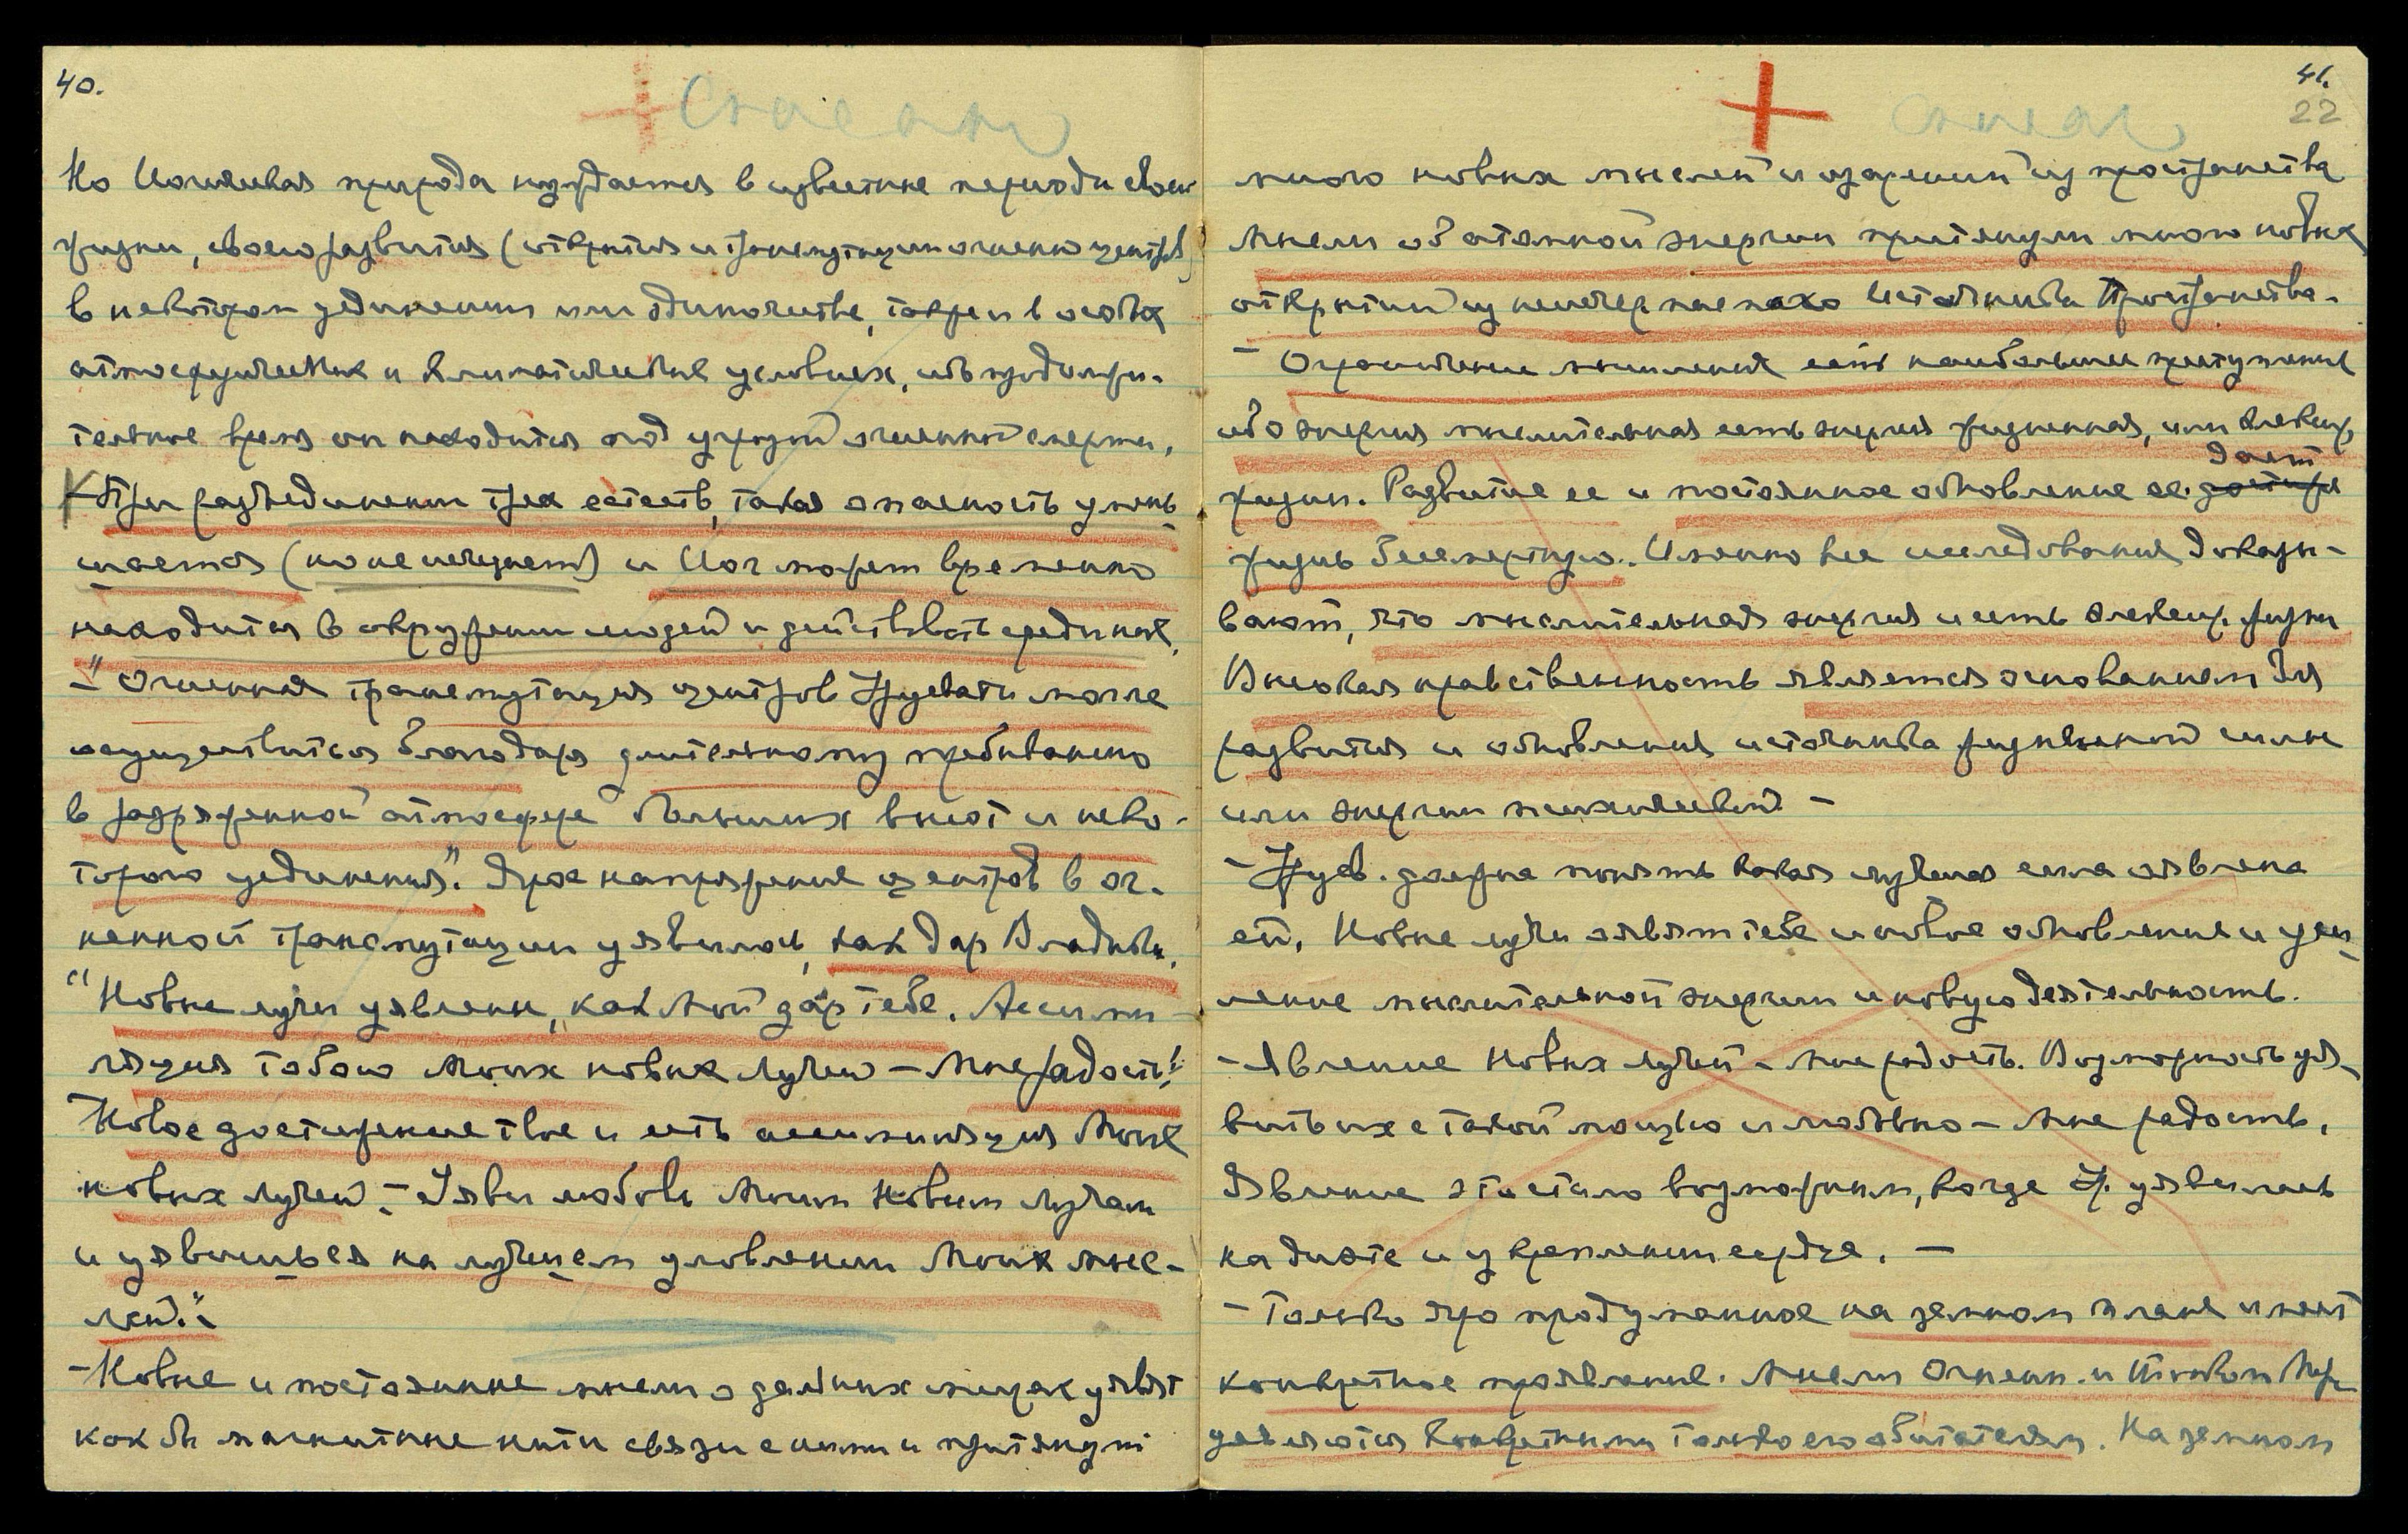 40.
Но Иогическая природа нуждается в известные периоды своей
жизни, своего развития (открытия и трансмутации огненно центров)
в некотором уединении или одиночестве, также и в особых
атмосферических и климатических условиях, ибо продолжи-
тельное время он находится под угрозой огненной смерти.
При разъединении трех естеств, такая опасность умень-
шается (но не исчезает) и Иог может временно
находиться в окружении людей и действовать среди них.
–"Огненная трансмутация центров Урусвати могла
осуществиться благодаря длительному пребыванию
в разряженной атмосфере больших высот и неко-
торого уединения". Ярое напряжение центров в ог-
ненной трансмутации уявилось, как дар Владыки.
"Новые лучи уявлены, как Мой дар тебе. Ассими-
ляция тобою Моих новых лучей – Мне радость!
Новое достижение твое и есть ассимиляция Моих
новых лучей. – Уяви любовь Моим Новым лучам
и уявишься на лучшем уловлении Моих мыс-
лей."
– Новые и постоянные мысли о дальних мирах уявят
как бы магнитные нити связи с ними и притянут
41.
22
много новых мыслей и озарений из пространства
Мысли об атомной энергии притянули много новых
открытий из неисчерпаемого Источника Пространства.
– Ограничение мышления есть наибольшее преступление
ибо энергия мыслительная есть энергия жизненная, или элексир
жизни. Развитие ее и постоянное обновление ее дает
жизнь бессмертную. Именно все исследования доказы-
вают, что мыслительная энергия и есть элексир жизни
Высокая нравственность является основанием для
развития и обновления источника жизненной силы
или энергии психической –
– Урусв. должна понять какая лучевая сила явлена
ей. Новые лучи явят тебе и новое обновление и уси-
ление мыслительной энергии и новую деятельность.
– Явление Новых лучей – Мне радость. Возможность уя-
вить их с такой мощью и любовью – Мне радость.
Явление это стало возможным, когда У. уявилась
на диэте и укреплении сердца. –
– Только яро продуманное на земном плане имеет
конкретное проявление. Мысли Огненн. и Тонком Мире
уявляются конкретными только его обитателям. На земном